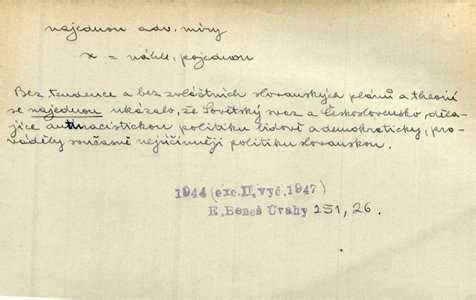 najednou adv. míry
x = náhle, pojednou
Bez tendence a bez zvláštních slovanských plánů a theorií
se najednou ukázalo, že Sovětský svaz a Československo děla-
jíce antinacistickou politiku lidově a demokraticky, pro-
váděly současně nejúčinněji politiku slovanskou.
1944 (exc. II. vyd. 1947)
E. Beneš Úvahy 251, 26.